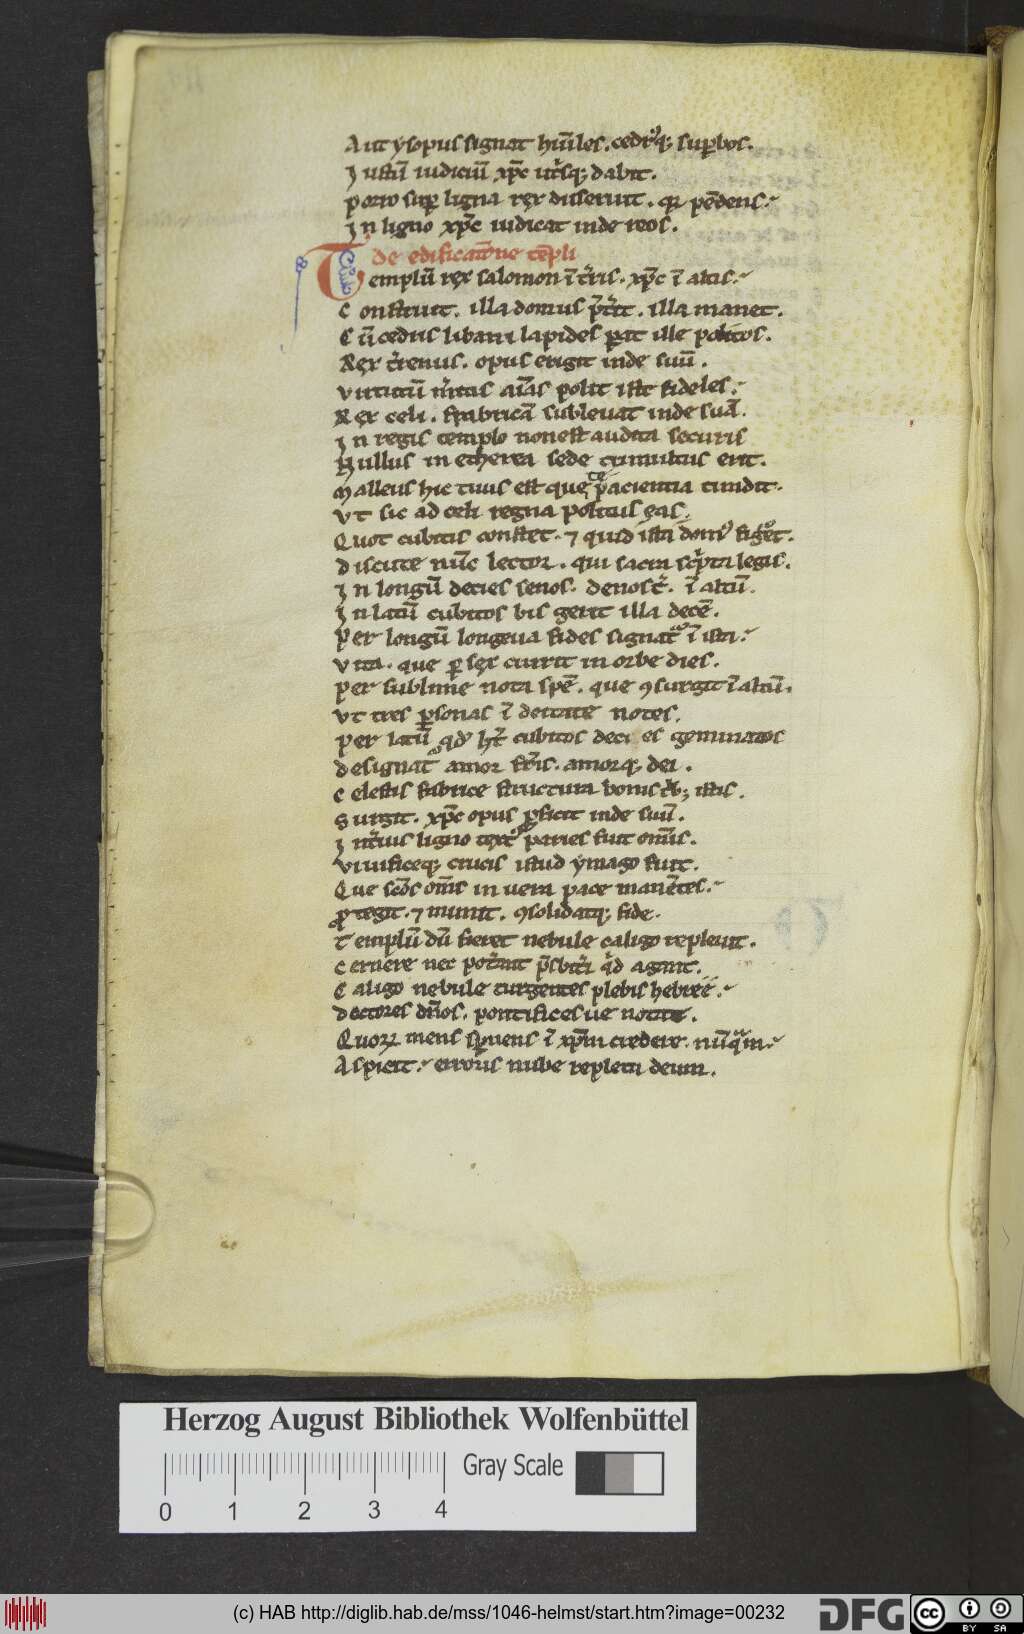 Aut ysopus signat hūiles. cedrꝰq; suꝑbos.
Iustū iudiciū xp̄c ut̛sq; dabit.
porro suꝑ ligna rex diseruit. qr pēdens
In ligno xp̄c iudicat inde reos.
de edificatōne tēpli
Templū rex salomon ī t̛ris. xp̄c ī altis
Construit. illa domus p̄t̛it. illa manet.
Cū cedris libani lapides ꝑat ille politos.
Rex t̛renus. opus erigit inde suū.
virtutū m̛itis aīas polit iste fideles
Rex celi. fabricā subleuat inde suā.
In regis templo non est audita securis
Nullus in etherea sede tumultus erit.
Malleus hic tuus est que te pacientia tundit.
Vt sic ad celi regna politus eas.
Quot cubitis constet. ⁊ quid ista domꝰ figͣet.
discute nūc lector. qui sacra sc̛pta legis.
In longū decies senos. denos t̛. ī altū.
In latū cubitos bis gerit illa decē.
Per longū longeua fides signatᷣ ī ista
vita. que ꝑ sex currit in orbe dies.
per sublime nota spē. que ꝯsurgit ī altū.
Vt tres ꝑsonas ī deitate notes.
per latū qd̛ hꝫ cubitos deci es geminatos
designatᷣ amor fr̄is. amorq; dei.
Celestis fabrice structura bonis trib; istis.
Surgit. xp̄c opus ꝑficit inde suū.
Int̛ius ligno textꝰ paries fuit om̄is.
viuificeq; crucis istud ymago fuit.
Que sc̄os om̄s in uera pace manētes.
ꝓtegit. ⁊ munit. ꝯsolidatq; fide.
Templū dū fieret nebule caligo repleuit.
Cernere nec pot̛ant p̄sbit̛i q̛d agant.
Caligo nebule turgentes plebis hebree
doctores dn̄os. pontificesue notate.
Quoꝝ mens sꝑnens ī xp̄m credere. nūqͣm
Aspicit. erroris nube repleta deum.
Herzog August Bibliothek Wolfenbüttel
Gray Scale
0 1 2 3 4
(c) HAB http://diglib.hab.de/mss/1046-helmst/start.htm?image=00232
DFG
cc BY SA